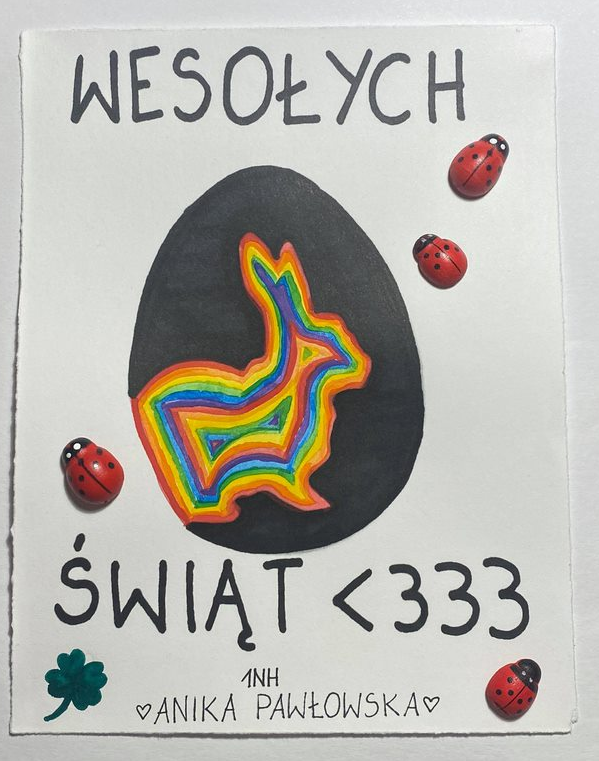 WESOŁYCH
ŚWIĄT <333
1NH
♡ANIKA PAWŁOWSKA♡